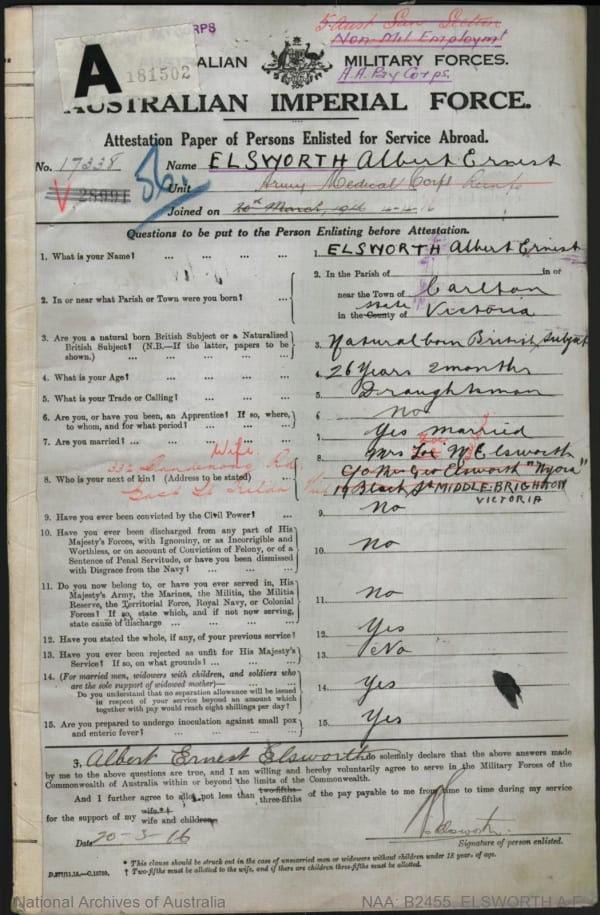 5 Aust San Section
Non-Mil Employmt
CORPS
A
181502
ALIAN MILITARY FORCES.
A.A. Pay Corps.
AUSTRALIAN IMPERIAL FORCE.
Attestation Paper of Persons Enlisted for Service Abroad.
No. 17338 Name ELSWORTH Albert Ernest
28991 Unit Army Medical Corps Reinfs
Joined on 20th March, 1916 4-4-16
Questions to be put to the Person Enlisting before Attestation.
1. What is your Name? ... ... ... 1. ELSWORTH Albert Ernest
2. In or near what Parish or Town were you born? ... 2. In the Parish of in or
near the Town of Carlton
state
in the County of Victoria
3. Are you a natural born British Subject or a Naturalized
British Subject? (N.B.—If the latter, papers to be
shown.) ... ... ... 3. Natural born British Subject
4. What is your Age? ... ... ... 4. 26 Years 2 months
5. What is your Trade or Calling? ... ... ... 5. Draughtsman
6. Are you, or have you been, an Apprentice? If so, where,
to whom, and for what period? ... ... ... 6. No
7. Are you married? ... ... ... 7. Yes married
Wife
332 Dandenong Rd
East St Kilda
8. Who is your next of kin? (Address to be stated) ... 8. Mrs M Elsworth
C/o Mr Geo Elsworth "Nyora"
19 Black St MIDDLE BRIGHTON
VICTORIA
9. Have you ever been convicted by the Civil Power? ... ... 9. No
10. Have you ever been discharged from any part of His
Majesty's Forces, with Ignominy, or as Incorrigible and
Worthless, or on account of Conviction of Felony, or of a
Sentence of Penal Servitude, or have you been dismissed
with Disgrace from the Navy? ... ... ... 10. No
11. Do you now belong to, or have you ever served in, His
Majesty's Army, the Marines, the Militia, the Militia
Reserve, the Territorial Force, Royal Navy, or Colonial
Forces? If so, state which, and if not now serving,
state cause of discharge ... ... ... 11. No
12. Have you stated the whole, if any, of your previous service? 12. Yes
13. Have you ever been rejected as unfit for His Majesty's
Service? If so, on what grounds? ... ... ... 13. No
14. (For married men, widowers with children, and soldiers who
are the sole support of widowed mother)—
Do you understand that no separation allowance will be issued
in respect of your service beyond an amount which
together with pay would reach eight shillings per day? 14. Yes
15. Are you prepared to undergo inoculation against small pox
and enteric fever? ... ... ... 15. Yes
I, Albert Ernest Elsworth do solemnly declare that the above answers made
by me to the above questions are true, and I am willing and hereby voluntarily agree to serve in the Military Forces of the
Commonwealth of Australia within or beyond the limits of the Commonwealth.
And I further agree to allot not less than two-fifths three-fifths of the pay payable to me from time to time during my service
for the support of my wife*† wife and children
Date 20-3-16 Elsworth
Signature of person enlisted.
* This clause should be struck out in the case of unmarried men or widowers without children under 18 years of age.
† Two-fifths must be allotted to the wife, and if there are children three-fifths must be allotted.
D.277/11.15.—C.15790.
National Archives of Australia NAA: B2455, ELSWORTH A E